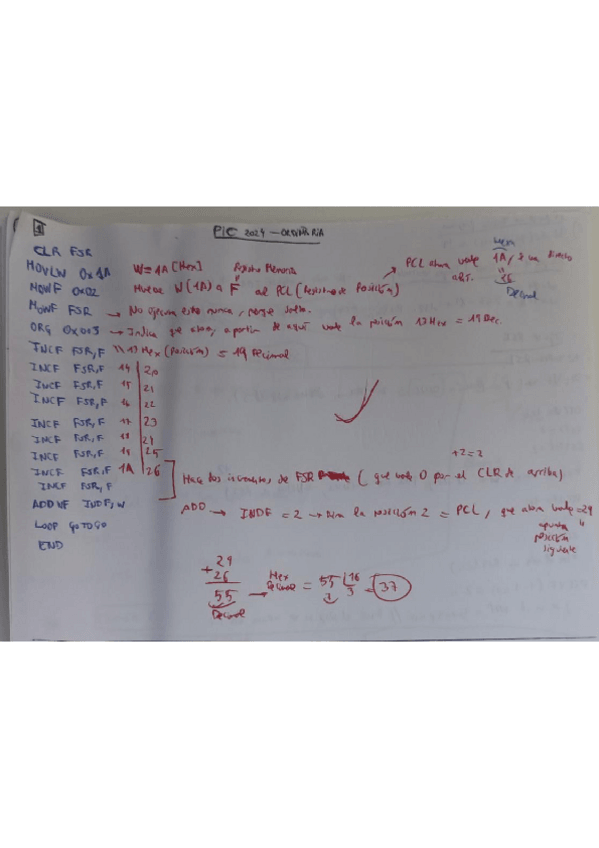 1
PIC 2024 - ORDINARIA
CLR FSR
MOVLW 0x1A W=1A [Hex] Registro Memoria
MOWF 0x02 Mueve W(1A) a F al PCL (Registro de Posición) → PCL ahora vale 1A, 26 Decimal
MOWF FSR → No ejecuta esto nunca, porque salta.
ORG 0x013 → Indica que ahora, a partir de aquí vale la posición 13 Hex = 19 Dec.
INCF FSR,F \\ 13 Hex (Posición) = 19 Decimal
INCF FSR,F 14 20
INCF FSR,F 15 21
INCF FSR,F 16 22
INCF FSR,F 17 23
INCF FSR,F 18 24
INCF FSR,F 19 25
INCF FSR,F 1A 26
INCF FSR,F
+2=2
Hace dos incrementos de FSR (que vale 0 por el CLR de arriba)
ADDWF INDF,W
ADD → INDF = 2 → Mira la posición 2 = PCL, que ahora vale = 29
apunta
posición
siguiente
LOOP GOTO GO
END
+ 29
26
55 → Hex Decimal = 55 16 7 3 = 37
Decimal